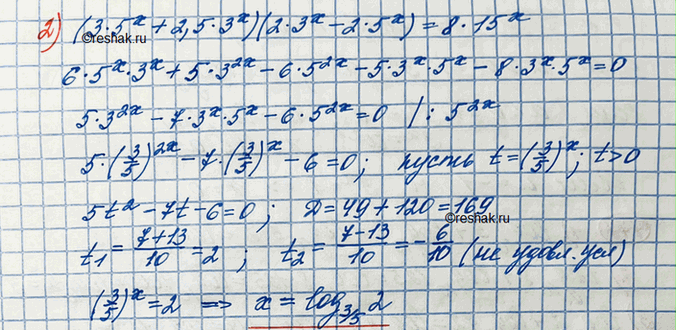 2) (3·5ˣ + 2,5·3ˣ)(2·3ˣ − 2·5ˣ) = 8·15ˣ
©reshak.ru
6·5ˣ·3ˣ + 5·3²ˣ − 6·5²ˣ − 5·3ˣ·5ˣ − 8·3ˣ·5ˣ = 0
5·3²ˣ − 7·3ˣ·5ˣ − 6·5²ˣ = 0 | : 5²ˣ
5·(3/5)²ˣ − 7·(3/5)ˣ − 6 = 0; пусть t = (3/5)ˣ; t > 0
5t² − 7t − 6 = 0; D = 49 + 120 = 169
©reshak.ru
t₁ = (7+13)/10 = 2; t₂ = (7−13)/10 = −6/10 (не удовл. усл)
(3/5)ˣ = 2 ⟹ x = log₃/₅ 2